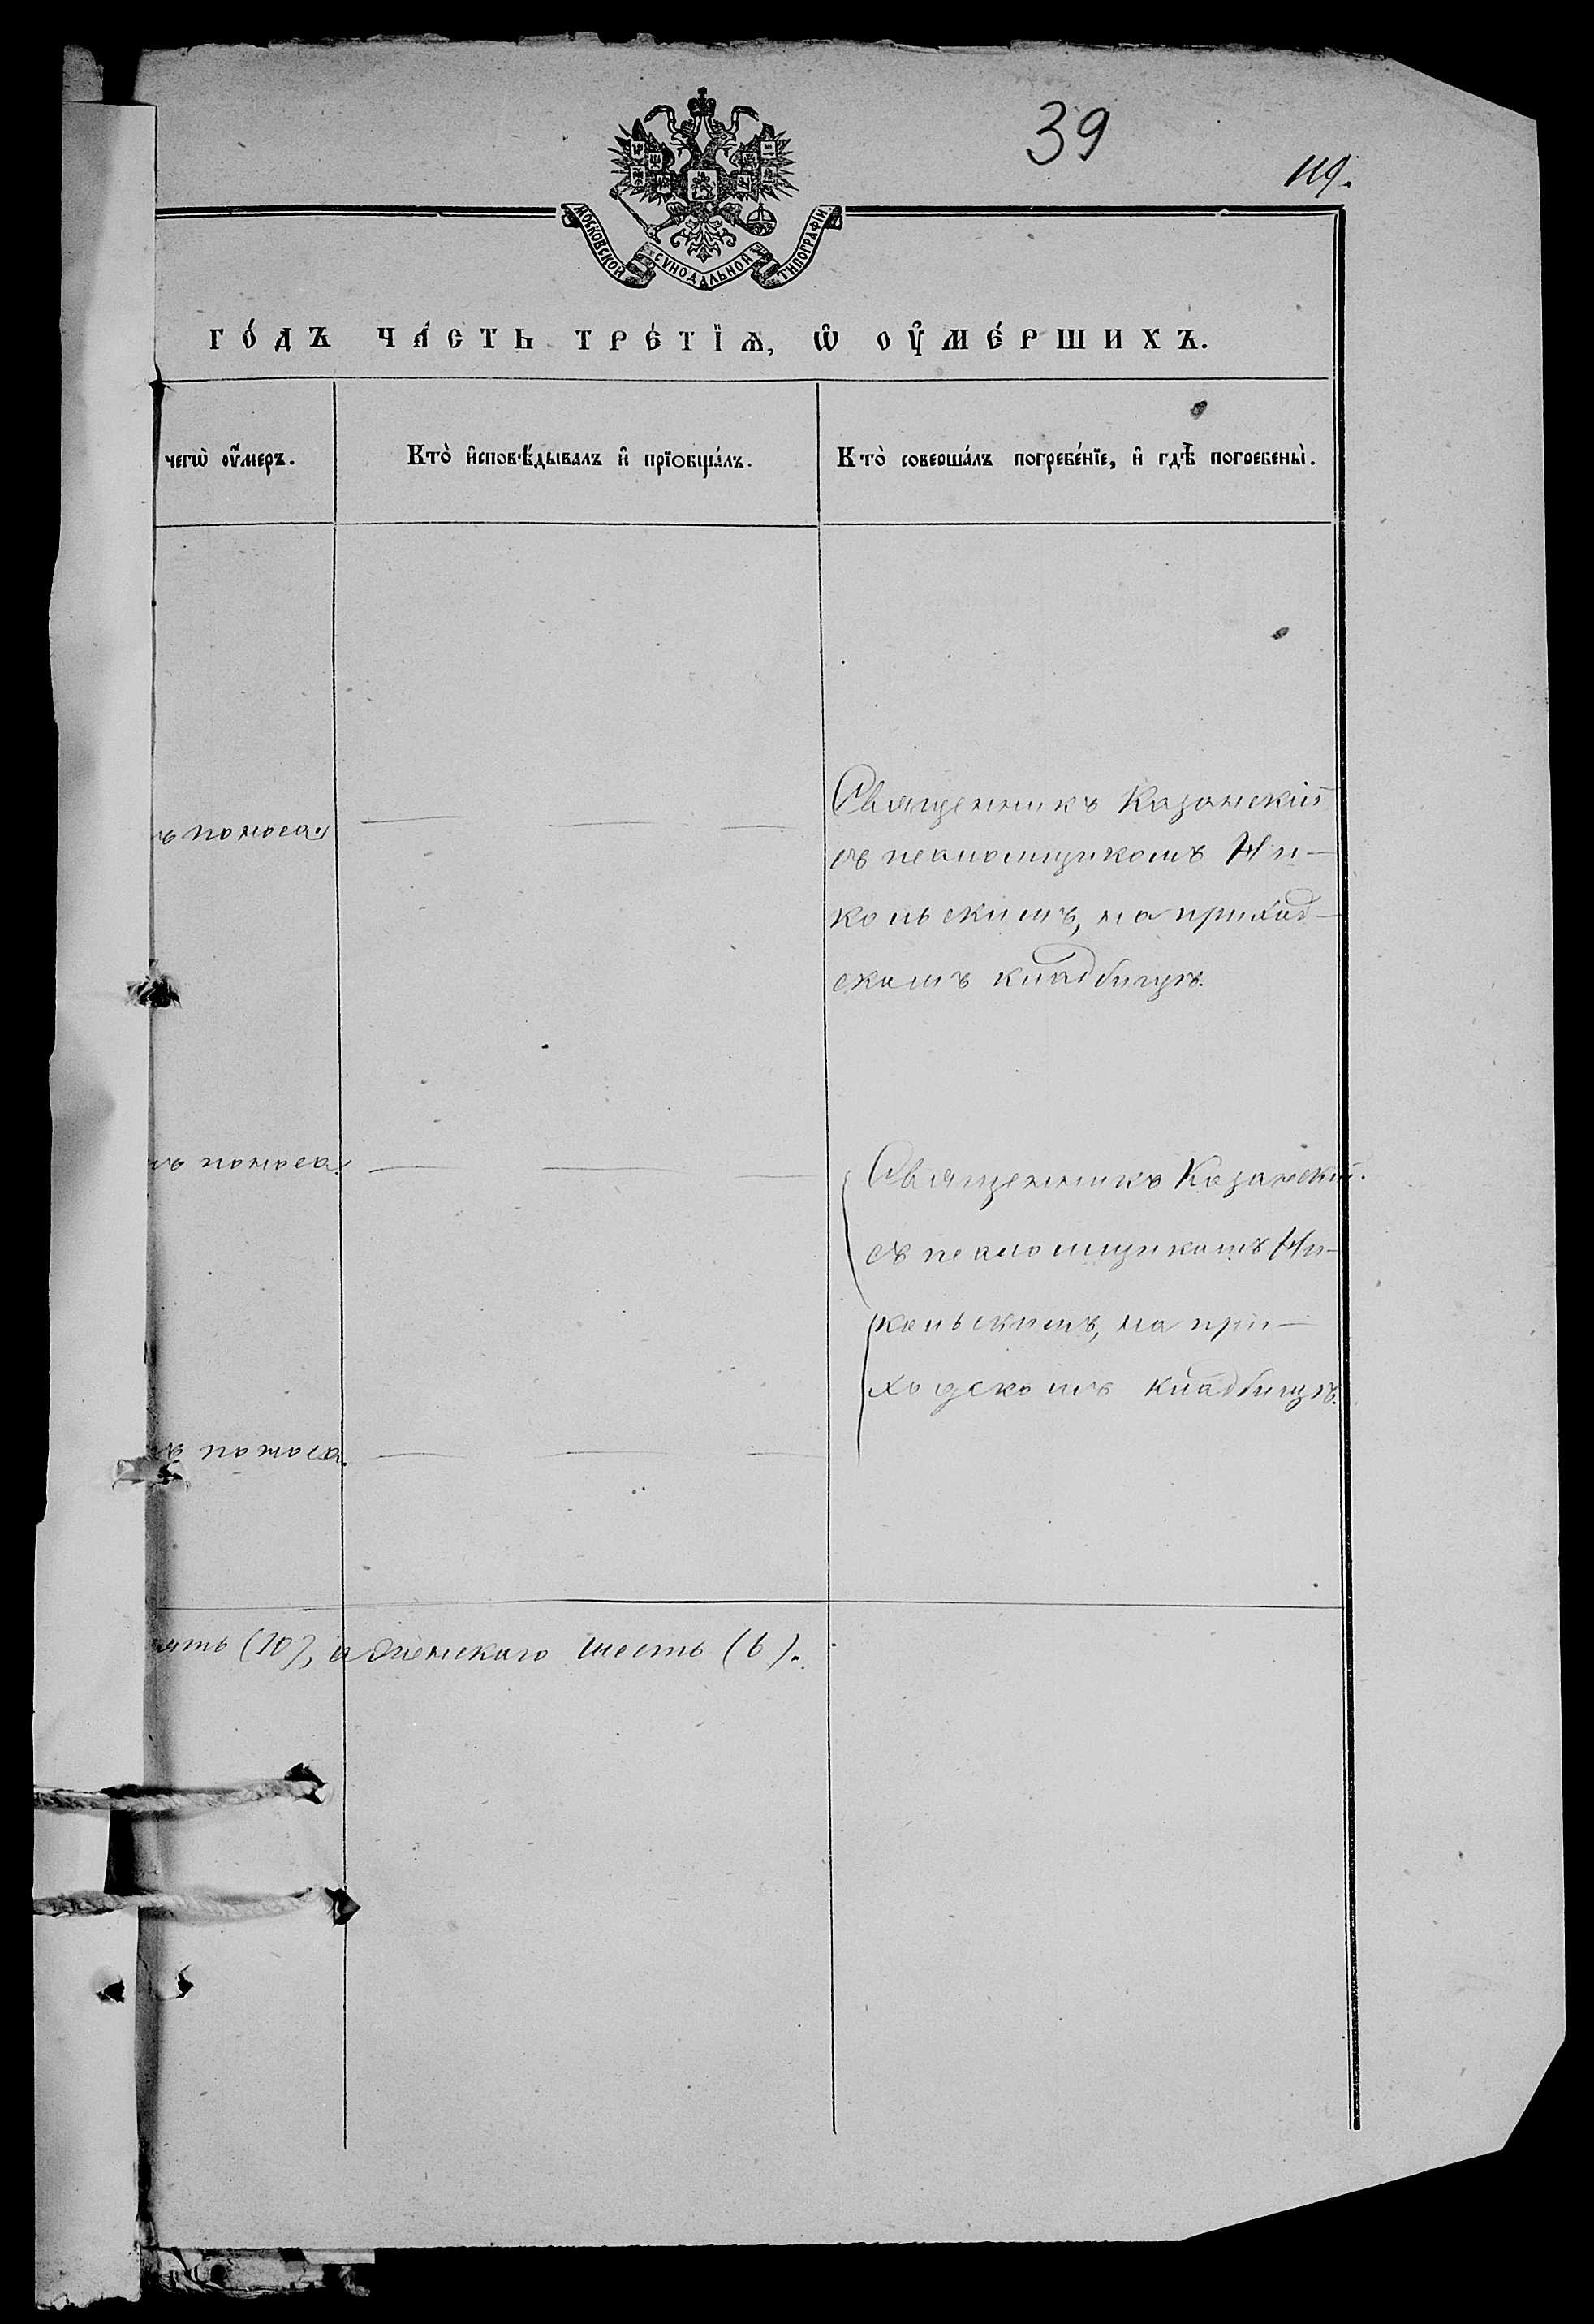 39
119.
МОСКОВСКОЙ СУНОДАЛЬНОЙ ТИПОГРАФІИ.
го́дъ ча́сть тре́тїѧ, ѡ҆ оу҆ме́ршихъ.
чегѡ̀ оу҆́меръ.
Кто̀ и҆сповѣ́дывалъ и҆ прїобща́лъ.
Кто̀ соверша́лъ погребе́нїе, и҆ гдѣ̀ погребены̀.
ъ поноса.
Священникъ Казанскій
съ псаломщикомъ Ни-
кольскимъ, на приход-
скомъ кладбищѣ.
ъ поноса.
Священникъ Казанскій.
съ псаломщикомъ Ни-
кольскимъ, на при-
ходскомъ кладбищѣ.
ъ поноса.
ять (10), а женскаго шесть (6).